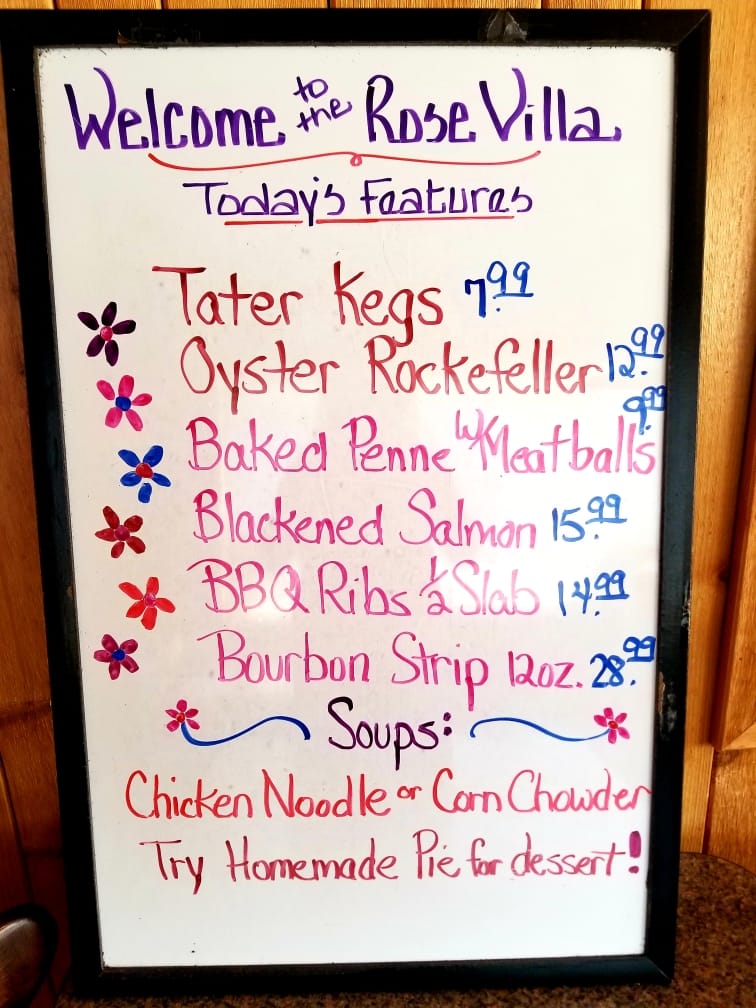 Welcome to the Rose Villa
Today's Features
Tater Kegs 7.99
Oyster Rockefeller 12.99
Baked Penne w/Meatballs 9.99
Blackened Salmon 15.99
BBQ Ribs 1/2 Slab 14.99
Bourbon Strip 12oz. 28.99
Soups:
Chicken Noodle or Corn Chowder
Try Homemade Pie for dessert!